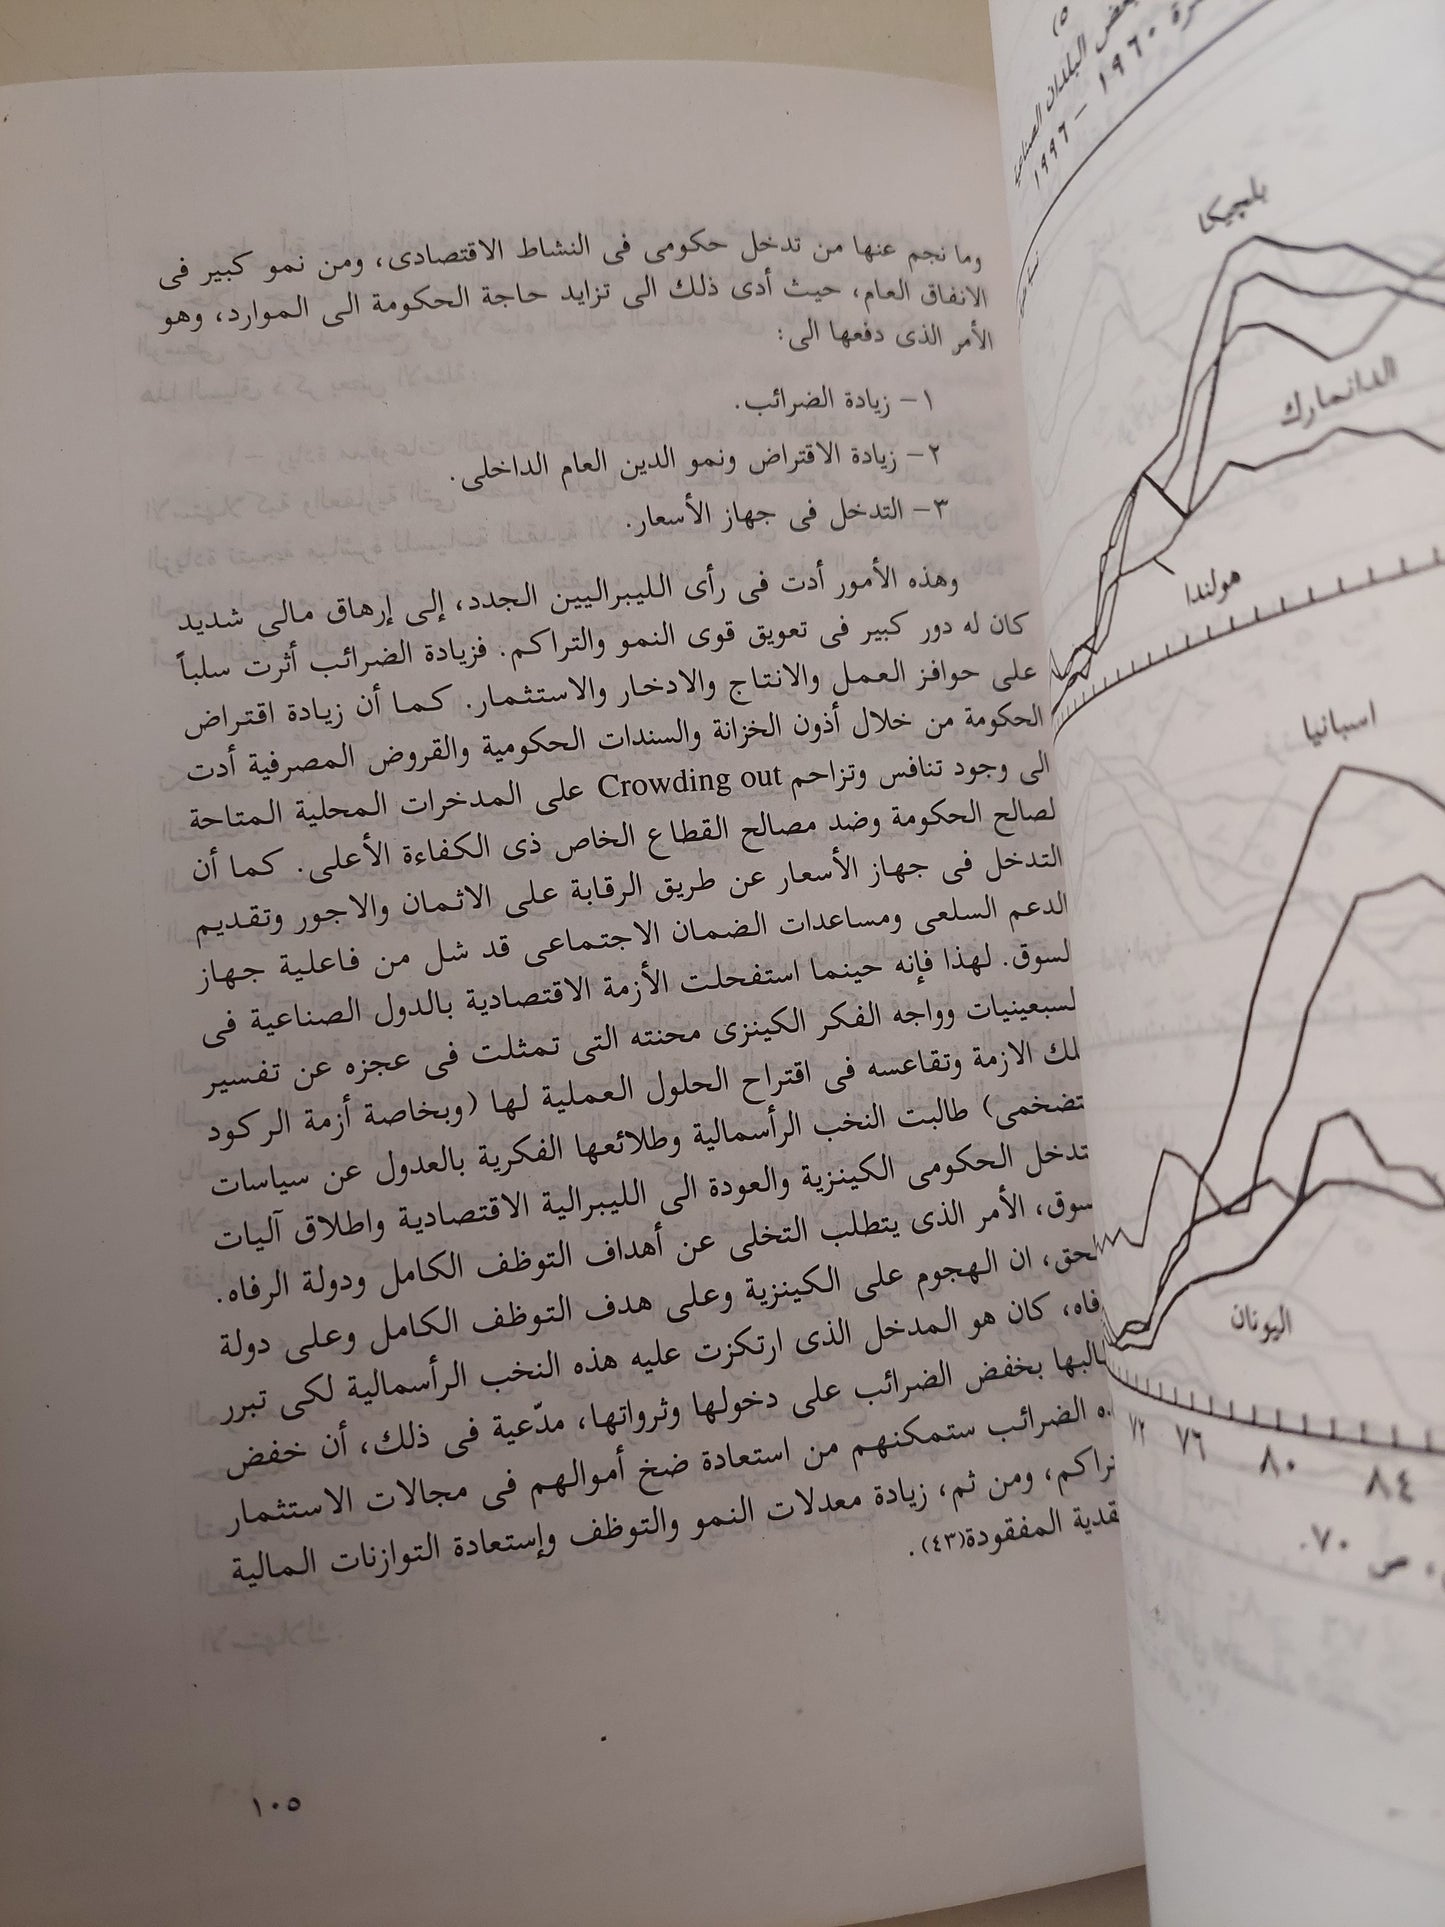 وما نجم عنها من تدخل حكومى فى النشاط الاقتصادى، ومن نمو كبير فى
الانفاق العام، حيث أدى ذلك الى تزايد حاجة الحكومة الى الموارد، وهو
الأمر الذى دفعها الى:
١- زيادة الضرائب.
٢- زيادة الاقتراض ونمو الدين العام الداخلى.
٣- التدخل فى جهاز الأسعار.
وهذه الأمور أدت فى رأى الليبراليين الجدد، إلى إرهاق مالى شديد
كان له دور كبير فى تعويق قوى النمو والتراكم. فزيادة الضرائب أثرت سلباً
على حوافز العمل والانتاج والادخار والاستثمار. كما أن زيادة اقتراض
الحكومة من خلال أذون الخزانة والسندات الحكومية والقروض المصرفية أدت
الى وجود تنافس وتزاحم Crowding out على المدخرات المحلية المتاحة
لصالح الحكومة وضد مصالح القطاع الخاص ذى الكفاءة الأعلى. كما أن
التدخل فى جهاز الأسعار عن طريق الرقابة على الاثمان والاجور وتقديم
الدعم السلعى ومساعدات الضمان الاجتماعى قد شل من فاعلية جهاز
لسوق. لهذا فإنه حينما استفحلت الأزمة الاقتصادية بالدول الصناعية فى
لسبعينيات وواجه الفكر الكينزى محنته التى تمثلت فى عجزه عن تفسير
لك الازمة وتقاعسه فى اقتراح الحلول العملية لها (وبخاصة أزمة الركود
تضخمى) طالبت النخب الرأسمالية وطلائعها الفكرية بالعدول عن سياسات
تدخل الحكومى الكينزية والعودة الى الليبرالية الاقتصادية واطلاق آليات
سوق، الأمر الذى يتطلب التخلى عن أهداف التوظف الكامل ودولة الرفاه.
لحق، ان الهجوم على الكينزية وعلى هدف التوظف الكامل وعلى دولة
فاه، كان هو المدخل الذى ارتكزت عليه هذه النخب الرأسمالية لكى تبرر
البها بخفض الضرائب على دخولها وثرواتها، مدّعية فى ذلك، أن خفض
ه الضرائب ستمكنهم من استعادة ضخ أموالهم فى مجالات الاستثمار
راكم، ومن ثم، زيادة معدلات النمو والتوظف وإستعادة التوازنات المالية
قدية المفقودة(٤٣).
١٠٥
٥)
بعض البلدان الصناعية
١٩٦٠ - ١٩٩٦
بلچيكا
الدانمارك
هولندا
اسبانيا
اليونان
٧٢ ٧٦ ٨٠ ٨٤
ص ٧٠.